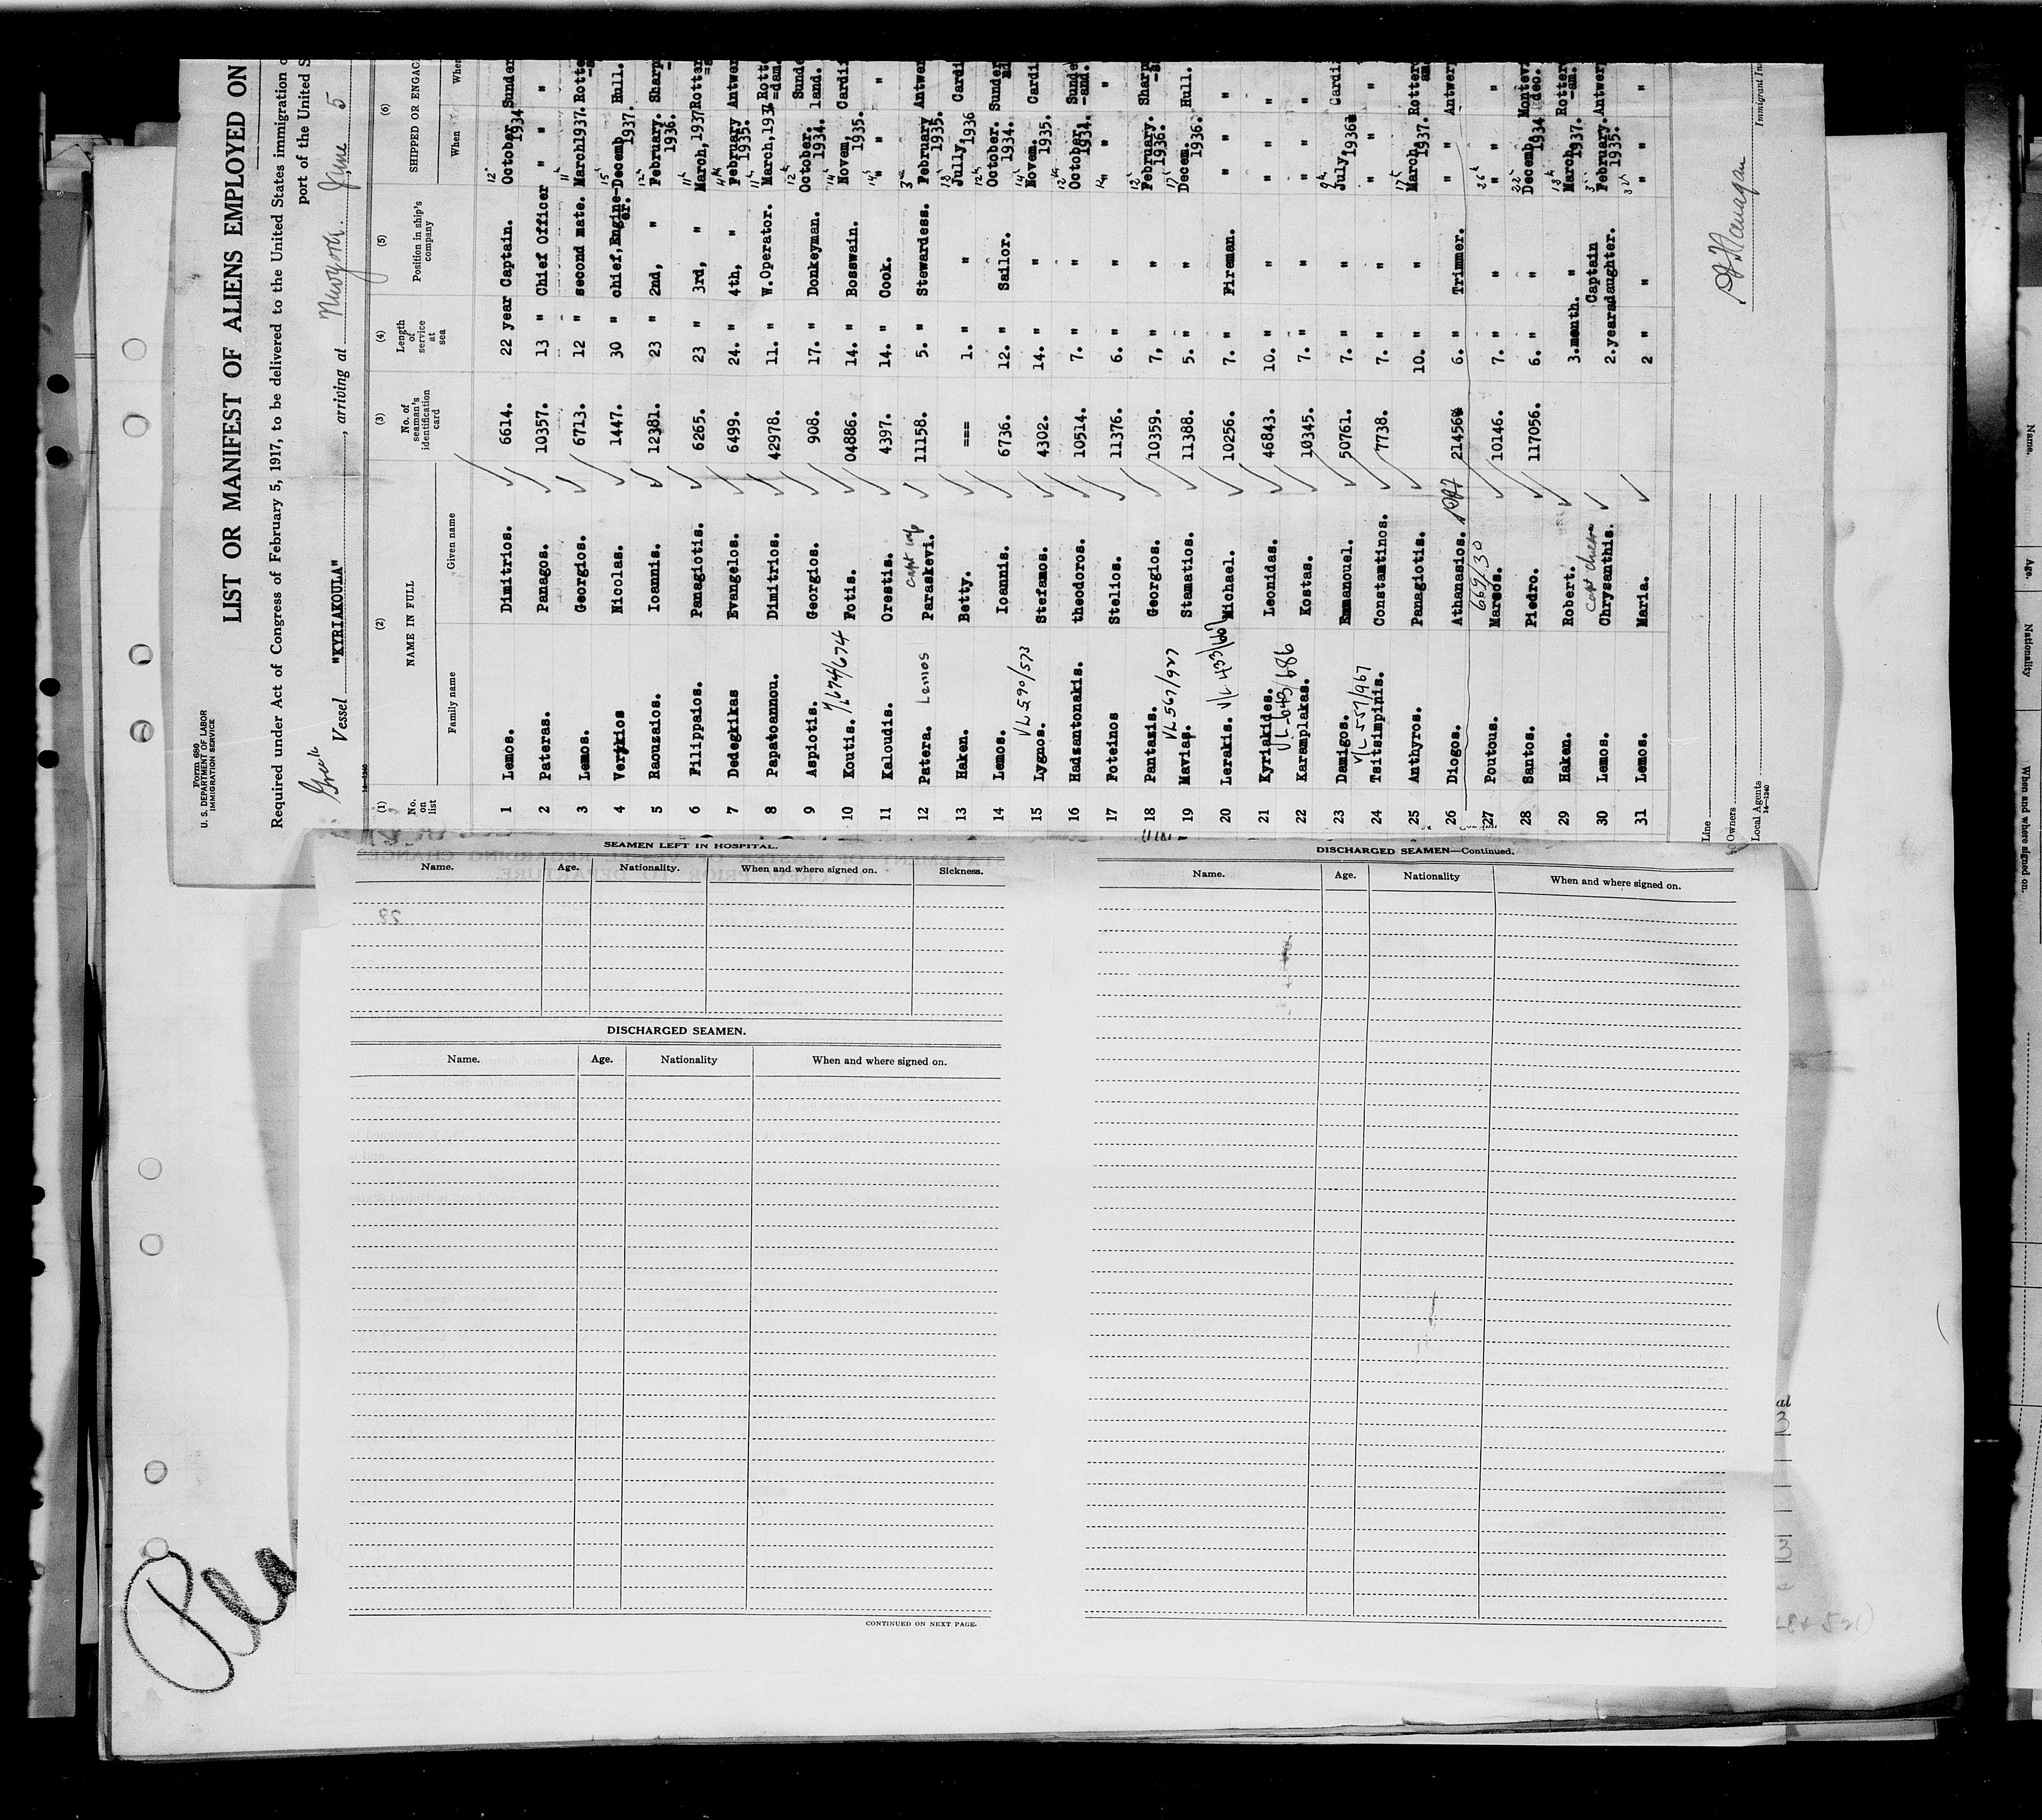 Form 680
U. S. DEPARTMENT OF LABOR
IMMIGRATION SERVICE
LIST OR MANIFEST OF ALIENS EMPLOYED ON
Required under Act of Congress of February 5, 1917, to be delivered to the United States immigration
port of the United S
Greek
Vessel "KYRIAKOULA", arriving at New York June 5
14—1240
(1) (2) (3) (4) (5) (6)
No. on list NAME IN FULL No. of seaman's identification card Length of service at sea Position in ship's company SHIPPED OR ENGAG
Family name Given name When Wher
1 Lemos. Dimitrios. 6614. 22 year Captain. 12" October 1934 Sunder
2 Pateras. Panagos. 10357. 13 " Chief Officer " " "
3 Lemos. Georgios. 6713. 12 " second mate. 11 March1937. Rotte
4 Verykios Nicolas. 1447. 30 " chief,Engine-er. 15 Decemb 1937. Hull.
5 Raouzaios. Ioannis. 12381. 23 " 2nd, " 12 February. 1936. Sharp
6 Filippaios. Panagiotis. 6265. 23 " 3rd, " 11 March,1937 Rotter
7 Dedegkikas Evangelos. 6499. 24. " 4th, " February 1935. Antwer
8 Papatoannou. Dimitrios. 42978. 11. " W.Operator. 11 March,1937 Rotte =dam.
9 Aspiotis. Georgios. 908. 17. " Donkeyman. 12 October. 1934. Sunde land.
10 Koutis. 674/674 Fotis. 04886. 14. " Bosswain. 14 Novem, 1935. Cardif
11 Kaloudis. Orestis. 4397. 14. " Cook. 14 " "
12 Patera. Lemos Paraskevi. capt wife 11158. 5. " Stewardess. 3 February 1935. Antwer
13 Haken. Betty. === 1. " " 13 Jully,1936 Cardi
14 Lemos. Ioannis. 6736. 12. " Sailor. 12 October. 1934. Sunder
15 Lygnos. V/L 590/573 Stefamos. 4302. 14. " " 14 Novem. 1935. Cardi
16 Hadzantonakis. theodoros. 10514. 7. " " 12 October, 1934. Sunde -and.
17 Foteinos Stelios. 11376. 6. " " " "
18 Pantazis. Georgios. 10359. 7, " " 12 February. 1936. Sharp
19 Mavias. V/L 567/927 Stamatios. 11388. 5. " " 17 Decem. 1936. Hull.
20 Lerakis. V/L 433/ Michael. 10256. 7. " Fireman. " "
21 Kyriakides. Leonidas. 46843. 10. " " " "
22 Karamplakas. V/L 643/686 Kostas. 10345. 7. " " " "
23 Damigos. Emmanouel. 50761. 7. " " 9 July,1936 Cardi
24 Tsitsimpinis. V/L 557/967 Constamtinos. 7738. 7. " " " "
25 Anthyros. Panagiotis. 10. " " 17 March, 1937. Rotter
26 Diogos. Athanasios. 21456 6. " Trimmer. " " Antwerp
27 Poutous. 669/30 Marsos. 10146. 7. " " 26 " "
28 Santos. Piedro. 117056. 6. " " 22 Decemb 1934 Montev deo.
29 Haken. Robert. 3.menth. " 13 March, 1937. Rotter -am.
30 Lemos. capt children Chrysanthis. 2.years Captain daughter. 3 February. 1935. Antwerp
31 Lemos. Maria. 2 " " " " "
Line
Owners
Local Agents
14—1240
Immigrant In
SEAMEN LEFT IN HOSPITAL.
Name. Age. Nationality. When and where signed on. Sickness.
DISCHARGED SEAMEN.
Name. Age. Nationality When and where signed on.
CONTINUED ON NEXT PAGE.
DISCHARGED SEAMEN—Continued.
Name. Age. Nationality When and where signed on.
Name. Age. Nationality When and where signed on.